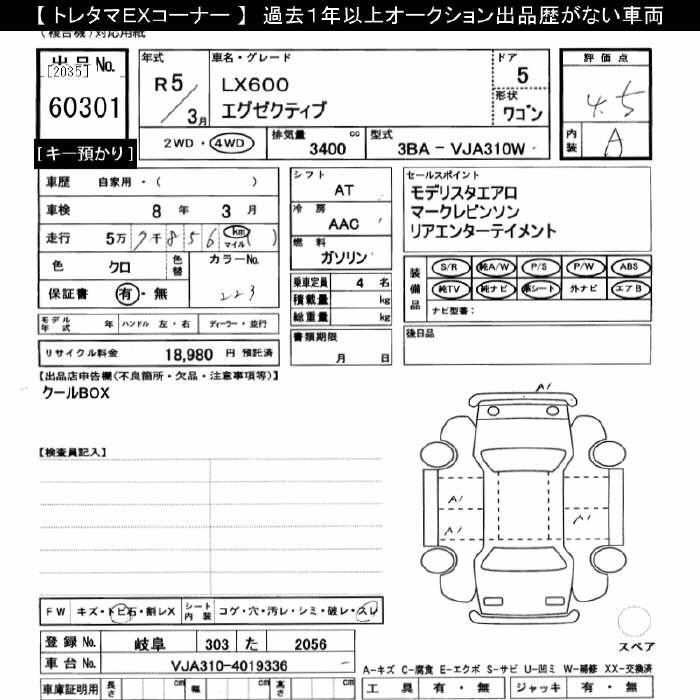 【トレタマEXコーナー】 過去１年以上オークション出品歴がない車両
(複合機)対応用紙
出品No.
[2035]
60301
[キー預かり]
年式 車名・グレード ドア 評価点
R5/3月 LX600 エグゼクティブ 5 4.5
形状 ワゴン
2WD・4WD 排気量 3400 cc 型式 3BA-VJA310W 内装 A
車歴 自家用・( )
車検 8年 3月
走行 5万7千856 km マイル ( )
色 クロ 色替 カラーNo. 223
保証書 有・無
モデル年式 年 ハンドル 左・右 ディーラー・並行
リサイクル料金 18,980 円 預託済
シフト AT
冷房 AAC
燃料 ガソリン
乗車定員 4 名
積載量 kg
総重量 kg
書類期限
月 日
セールスポイント
モデリスタエアロ
マークレビンソン
リアエンターテイメント
装備品 S/R 純A/W P/S P/W ABS
純TV 純ナビ 革シート 外ナビ エアB
ナビ型番:
後日品
【出品店申告欄(不良箇所・欠品・注意事項等)】
クールBOX
【検査員記入】
A1
A1
A1 A1
FW キズ・トビ石・割レX シート内装 コゲ・穴・汚レ・シミ・破レ・スレ
登録No. 岐阜 303 た 2056
車台No. VJA310-4019336
スペア
A-キズ C-腐食 E-エクボ S-サビ U-凹ミ W-補修 XX-交換済
車庫証明用 長さ cm 幅 cm 高さ cm
工具 有・無 ジャッキ 有・無